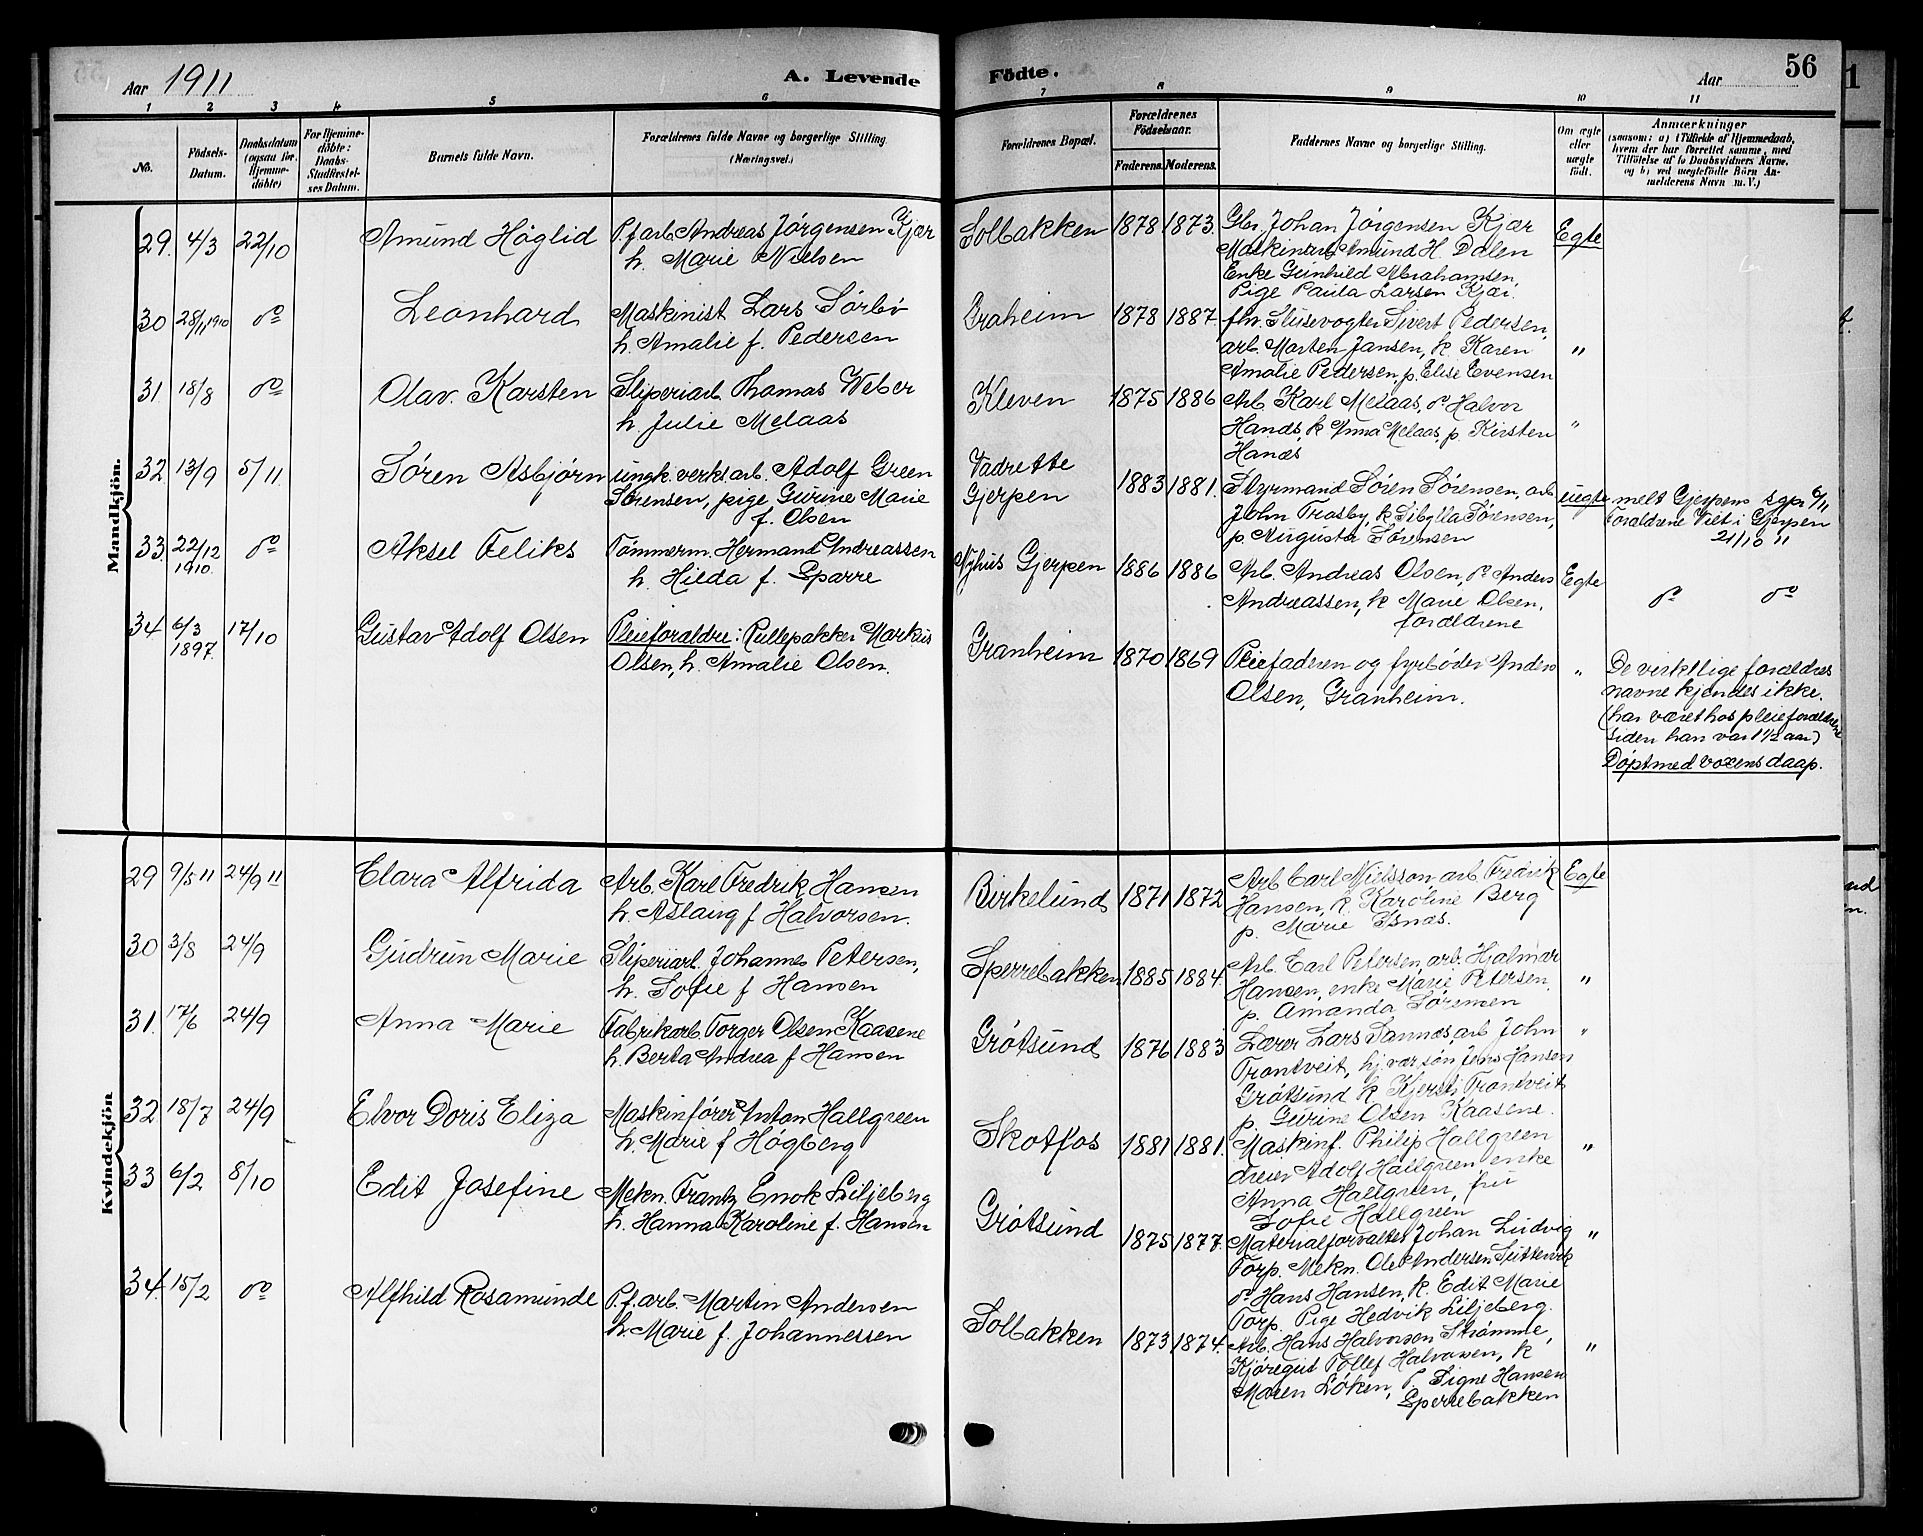 56
Aar 1911
A. Levende Födte.
Aar
1 2 3 4 5 6 7 8 9 10 11
No.
Födsels-Datum.
Daabsdatum (ogsaa for Hjemme-döbte)
For Hjemme-döbte: Daabs-Stadfæstel-ses Datum.
Barnets fulde Navn.
Forældrenes fulde Navne og borgerlige Stilling. (Næringsvei.)
Forældrenes Bopæl.
Forældrenes Födselsaar.
Faderens. Moderens.
Faddernes Navne og borgerlige Stilling.
Om ægte eller uægte födt.
Anmærkninger
(saasom: a) i Tilfælde af Hjemmedaab, hvem der har forrettet samme, med Tilföielse af to Daabsvidners Navne, og b) ved uægtefödte Börn An-melderens Navn m. V.)
Mandkjön.
29. 4/3 22/10 Amund Höglid P.f.arb. Andreas Jörgensen Kjær
h. Marie Nielsen
Solbakken 1878 1873. Gbr. Johan Jörgensen Kjær
Maskinarb. Amund H. Dalen
Enke Gunhild Abrahamsen,
Pige Paula Larsen Kjær.
Egte
30 28/1 1910 do Leonhard Maskinist Lars Sörbö
h. Amalie f. Pedersen
Graheim 1878 1887. fhv. Slusevogter Sivert Pedersen,
arb. Morten Jansen, k. Karen
Amalie Pedersen, p. Elise Evensen
"
31. 18/8 do Olav Karsten Sliperiarb. Thomas Weber
h. Julie Melaas
Kleven 1875 1886 Arb. Karl Melaas, do Halvor
Hanäs, k Anna Melaas, p. Kirsten
Hanæs
"
32. 13/9 5/11. Sören Asbjörn ungk. verkst.arb. Adolf Green
Sörensen, pige Gurine Marie
f. Olsen
Vadrette
Gjerpen 1883 1881. Styrmand Sören Sörensen, arb
John Trosby, k Sibylla Sörensen,
p. Augusta Sörensen
uegte melt Gjerpens sgpr 6/11
Foraldrene Viet i Gjerpen
21/10 11
33. 22/12 1910. do Aksel Feliks Tömmerm. Hermand Andreassen
h. Hilda f. Sparre
Nyhus Gjerpen 1886 1886 Arb. Andreas Olsen, do Anders
Andreassen, k Marie Olsen,
forældrene
Egte do do
34 6/3 1897. 17/10 Gustav Adolf Olsen Pleieforaldre: Rullepakker Markus
Olsen, h. Amalie Olsen.
Granheim 1870 1869 Pleiefaderen og fyrböder Anders
Olsen, Granheim.
" De virkllige foraldres
navne kjendes ikke.
(har været hos pleieforældrene
siden han var 1 1/2 aar)
Döpt med voxens daap.
Kvindekjön
29 9/5 11 24/9 11 Clara Alfrida Arb. Karl Fredrik Hansen
h. Aslaug f Halvorsen.
Birkelund 1871 1872 Arb Carl Nielsson arb Fredrik
Hansen, k. Karoline Berg
p. Marie Isnæs.
Egte
30 3/8 24/9 Gudrun Marie Sliperiarb. Johannes Petersen,
h. Sofie f Hansen
Sperrebakken 1885 1884. Arb. Carl Petersen, arb. Hjalmar
Hansen, enke Marie Petersen,
p. Amanda Sörensen
"
31. 17/6 24/9 Anna Marie Fabrikarb. Torger Olsen Kaasene
h. Berta Andrea f Hansen
Grötsund 1876 1883 Lærer Lars Sannæs, arb John
Trontveit, hj.vær.sön Jens Hansen
Grötsund k Kjersti Trontveit
p. Gurine Olsen Kaasene.
"
32 18/7 24/9 Elvor Doris Eliza Maskinförer Anton Hallgreen
h. Marie f Högberg
Skotfos 1881 1881. Maskinf. Philip Hallgreen
dreier Adolf Hallgreen, enke
Anna Hallgreen, fru
Sofie Hallgreen
"
33 6/2 8/10 Edit Josefine Mekn. Frantz Enok Liljeberg
h. Hanna Karoline f. Hansen
Grötsund 1875 1877. Materialforvalter Johan Ludvig
Torp. Mekn. Ole Andersen
do Hans Hansen, k. Edit Marie
Torp. Pige Hedvik Liljeberg.
"
34. 15/2 do Alfhild Rosamunde P.f.arb. Martin Andersen
h. Marie f. Johannessen
Solbakken 1873 1874. Arb. Hans Halvorsen Strömme,
Kjöregut Tollef Halvorsen, k
Maren Löken, p Signe Hansen
Sperrebakken
"